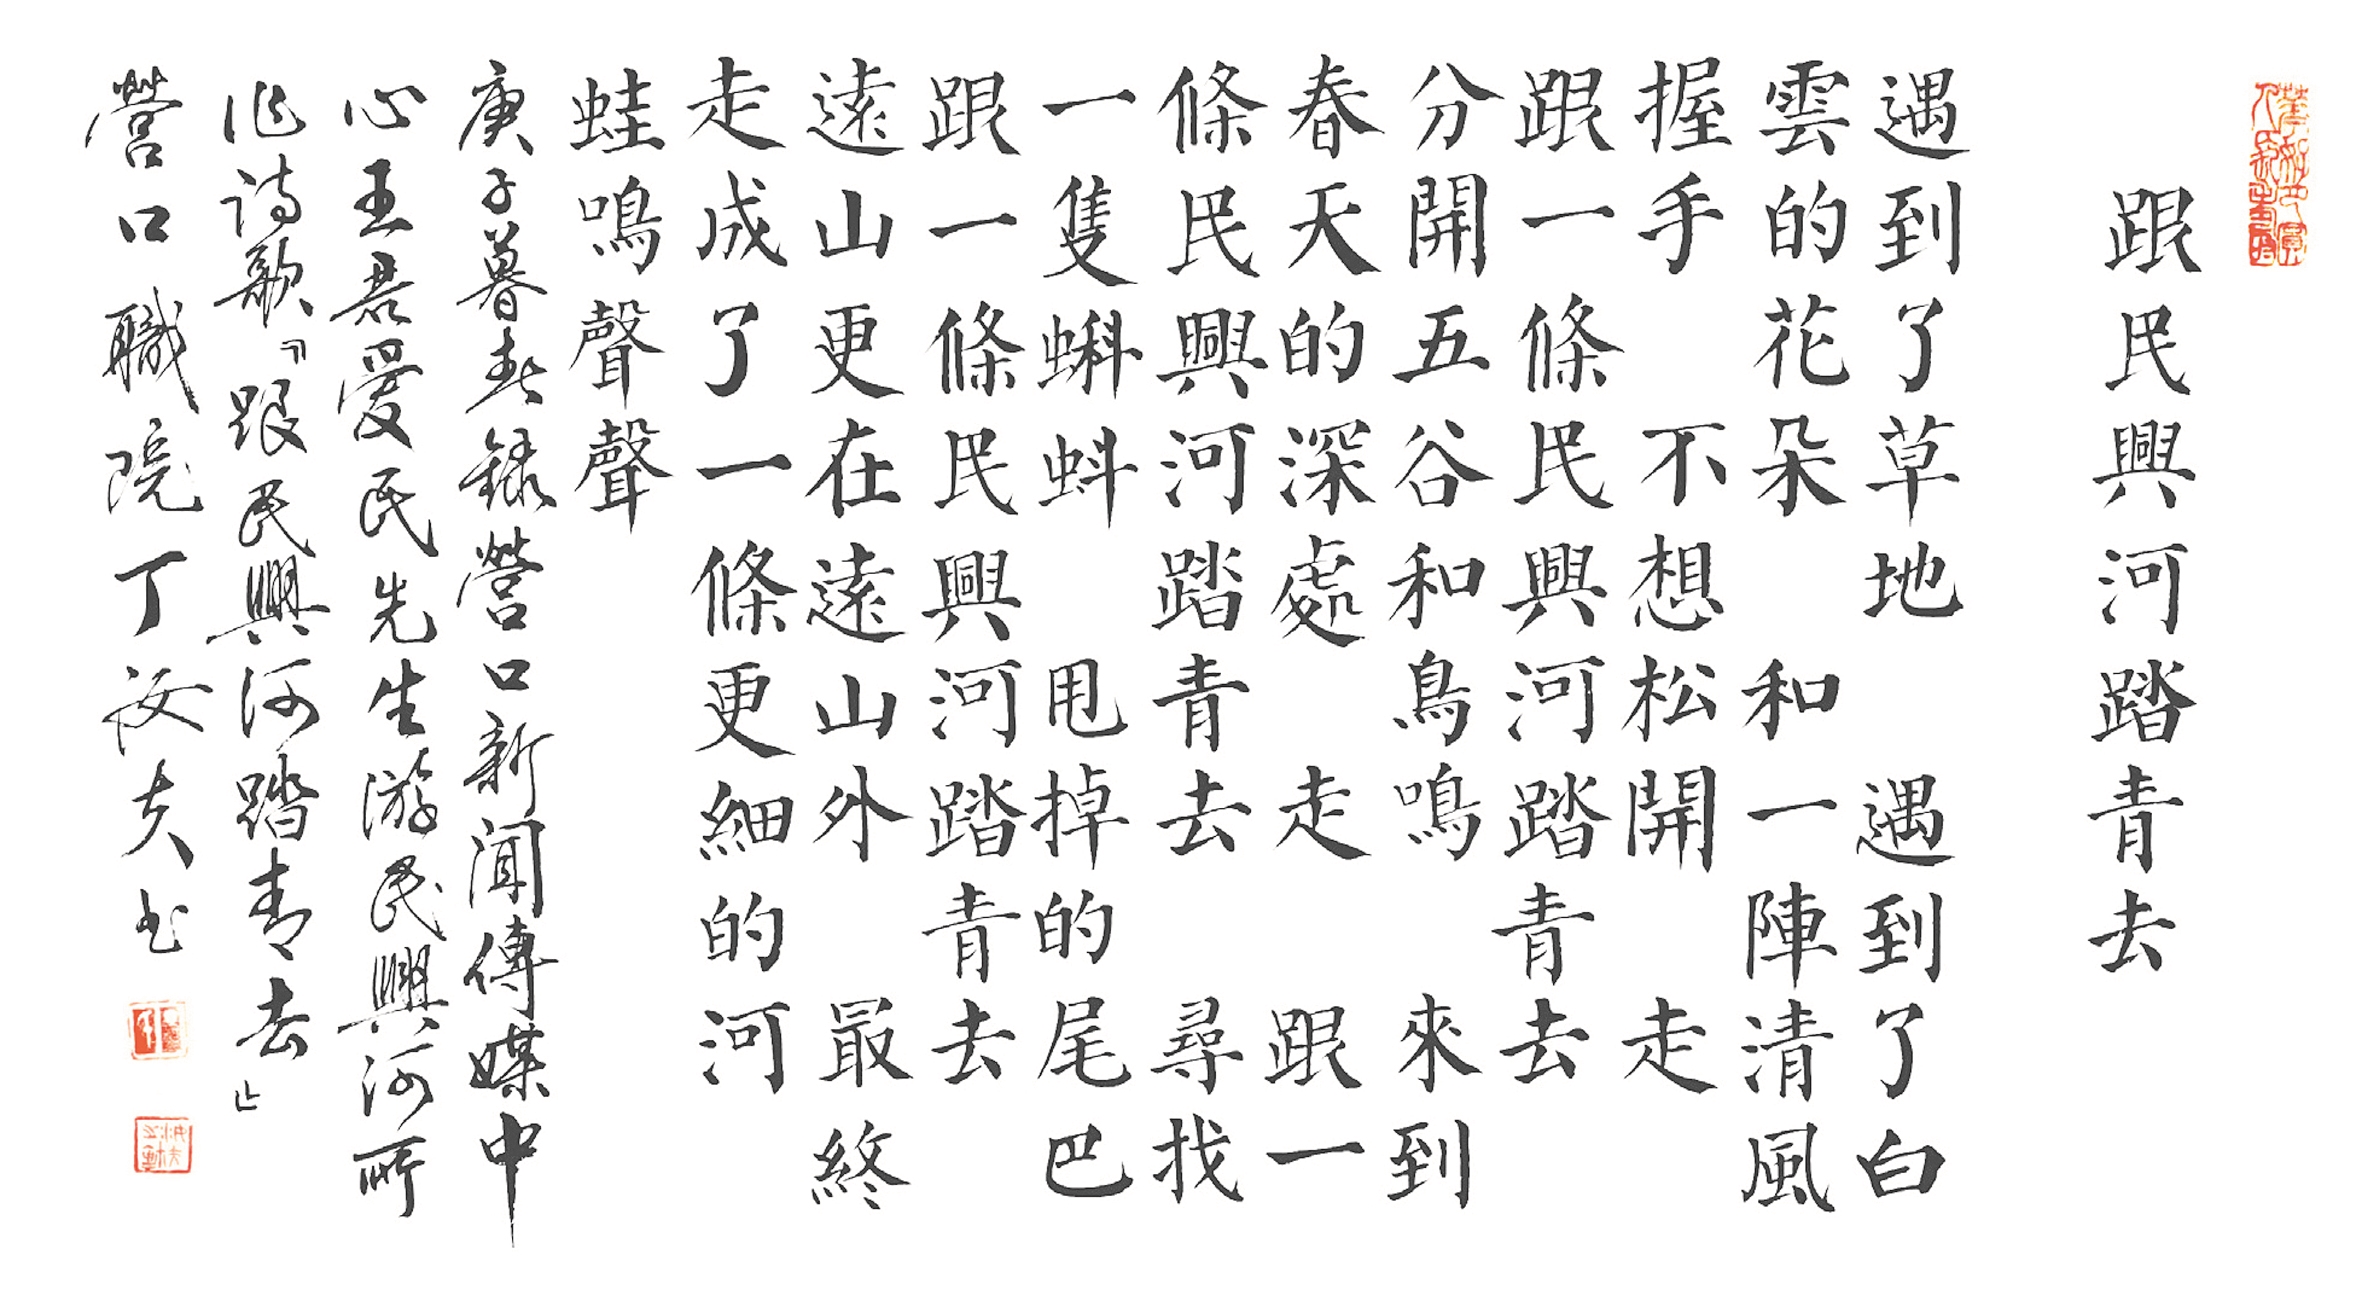 跟民興河踏青去
遇到了草地 遇到了白
雲的花朵 和一陣清風
握手 不想松開 走
跟一條民興河踏青去
分開五谷和鳥鳴 來到
春天的深處 走 跟一
條民興河踏青去 尋找
一隻蝌蚪 甩掉的尾巴
跟一條民興河踏青去
遠山更在遠山外 最終
走成了一條更細的河
蛙鳴聲聲
庚子暮春錄營口新聞傳媒中
心王君愛民先生游民興河所
作詩歌『跟民興河踏青去』
營口職院丁汝夫书